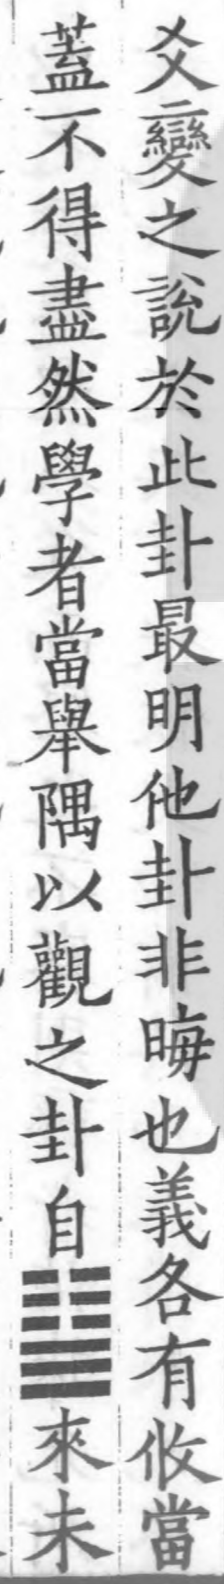 爻變之說於此卦最明他卦非晦也義各有攸當
蓋不得盡然學者當舉隅以觀之卦自䷊來未